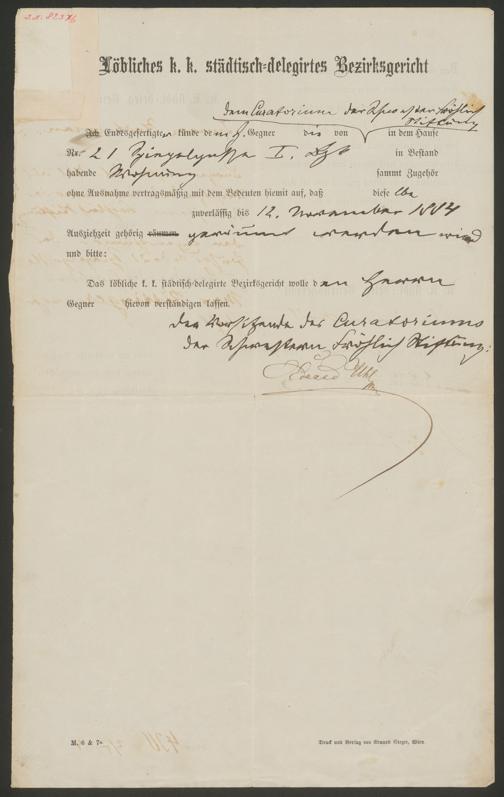 Löbliches k. k. städtisch-delegirtes Bezirksgericht
dem Curatorium der Schwestern Fröhlich
Stiftung
Ich Endesgefertigter künde dem H. Gegner die von in dem Hause
Nr. 21 Spiegelgasse I. in Bestand
habende Wohnung sammt Zugehör
ohne Ausnahme vertragsmäßig mit dem Bedeuten hiemit auf, daß dieselbe
zuverläßig bis 12. November 1884
Ausziehzeit gehörig räumen geräumt werden wird
und bitte:
Das löbliche k. k. städtisch-delegirte Bezirksgericht wolle den Herrn
Gegner hievon verständigen lassen.
Der Vorsitzende des Curatoriums
der Schwestern Fröhlich Stiftung:
Eduard Uhl
M. 6 & 7
Druck und Verlag von Eduard Sieger, Wien.